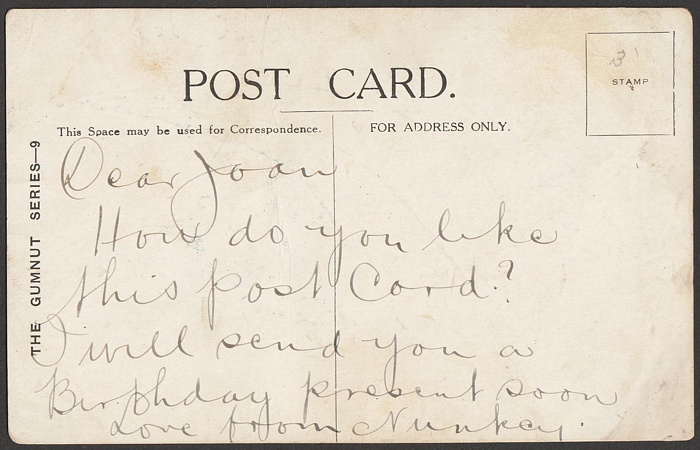 POST CARD.
This Space may be used for Correspondence.
FOR ADDRESS ONLY.
STAMP
THE GUMNUT SERIES—9
Dear Joan
How do you like
this post Card?
I will send you a
Birthday present soon
Love from Nunkey.